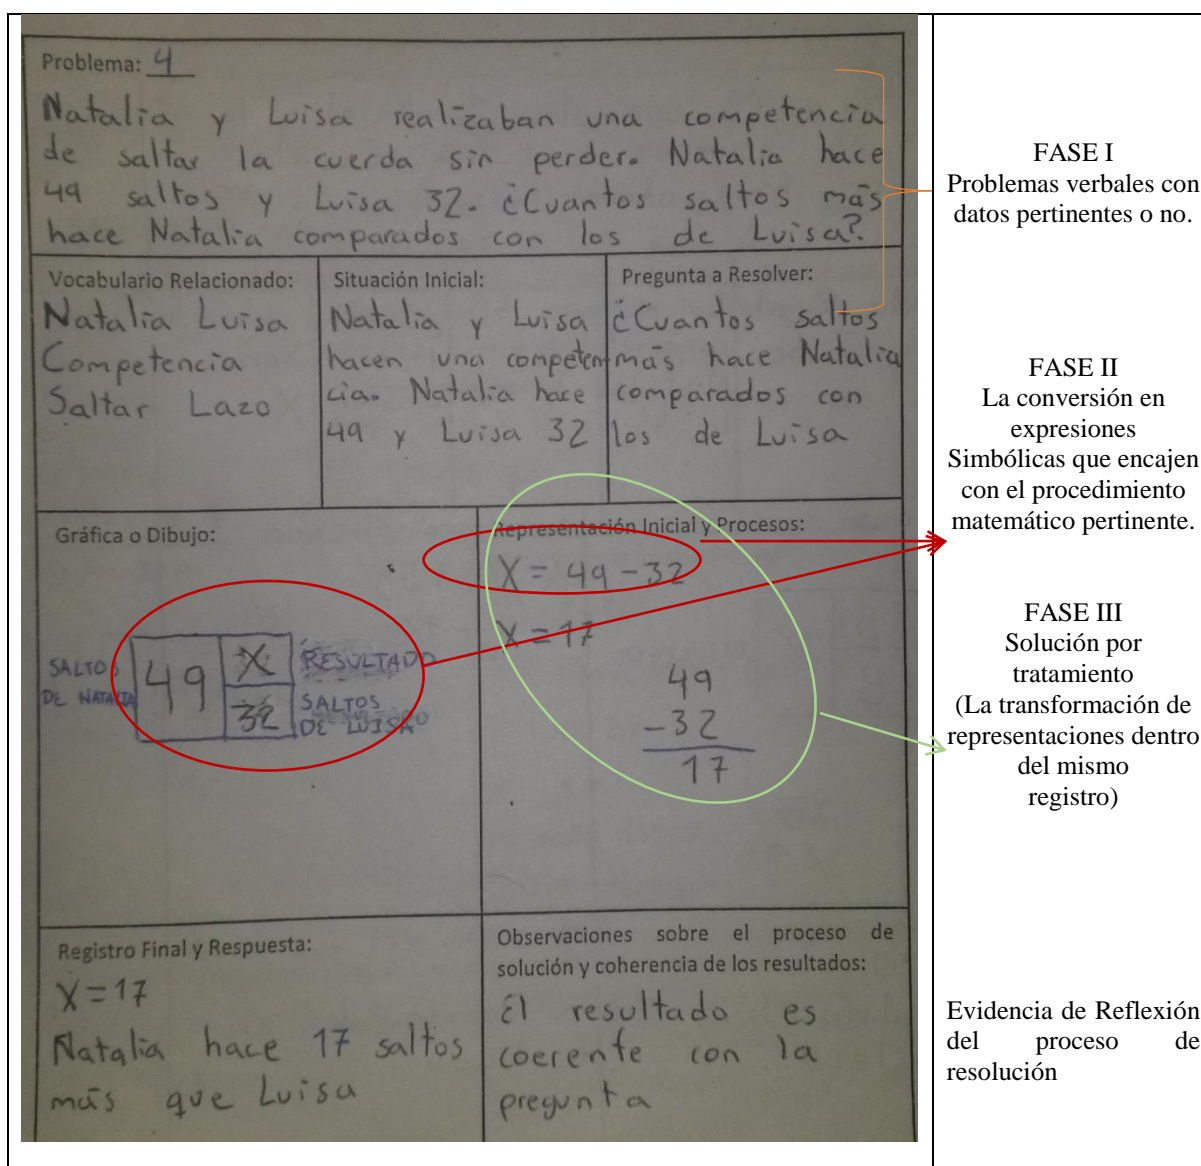 Problema: 4
Natalia y Luisa realizaban una competencia
de saltar la cuerda sin perder. Natalia hace
49 saltos y Luisa 32. ¿Cuantos saltos más
hace Natalia comparados con los de Luisa?
Vocabulario Relacionado:
Natalia Luisa
Competencia
Saltar Lazo
Situación Inicial:
Natalia y Luisa
hacen una competen-
cia. Natalia hace
49 y Luisa 32
Pregunta a Resolver:
¿Cuantos saltos
más hace Natalia
comparados con
los de Luisa
Gráfica o Dibujo:
SALTOS
DE NATALIA
49
X
32
RESULTADO
SALTOS
DE LUISA
Representación Inicial y Procesos:
X = 49 - 32
X = 17
49
- 32
17
Registro Final y Respuesta:
X = 17
Natalia hace 17 saltos
más que Luisa
Observaciones sobre el proceso de
solución y coherencia de los resultados:
El resultado es
coerente con la
pregunta
FASE I
Problemas verbales con
datos pertinentes o no.
FASE II
La conversión en
expresiones
Simbólicas que encajen
con el procedimiento
matemático pertinente.
FASE III
Solución por
tratamiento
(La transformación de
representaciones dentro
del mismo
registro)
Evidencia de Reflexión
del proceso de
resolución